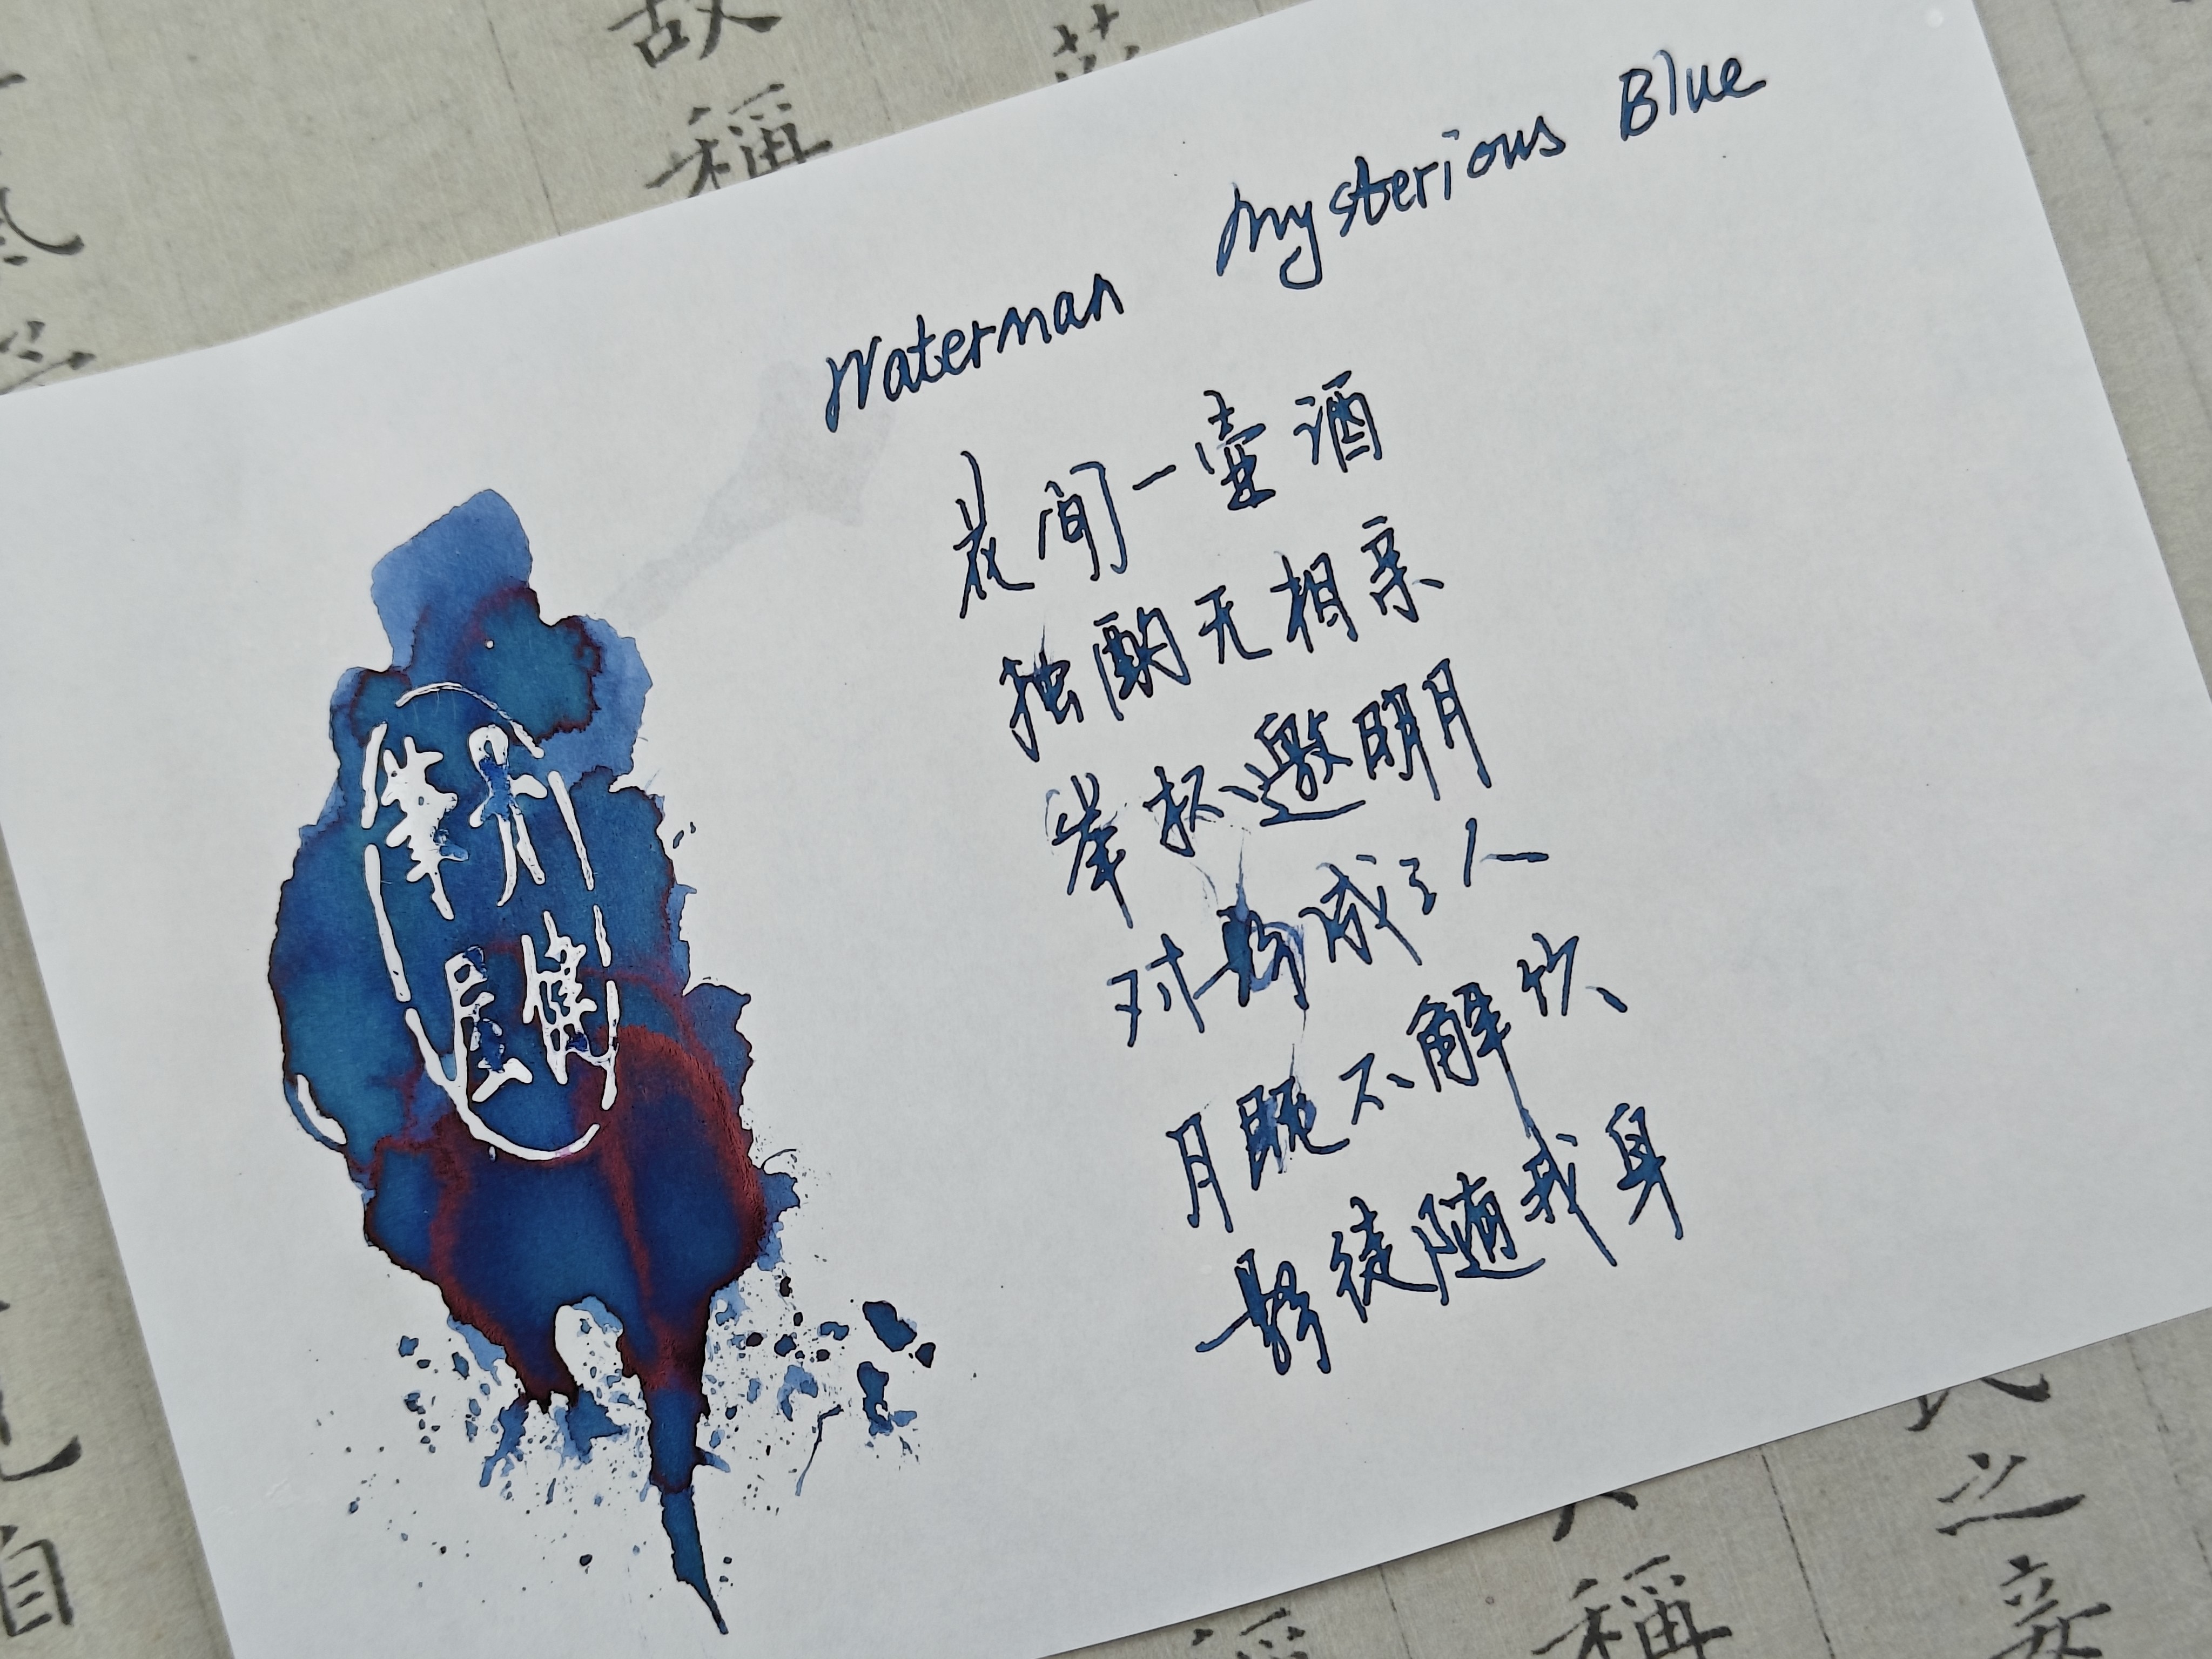 Waterman Mysterious Blue
花间一壶酒
独酌无相亲
举杯邀明月
对影成三人
月既不解饮
影徒随我身
故
稱
自
之
稱